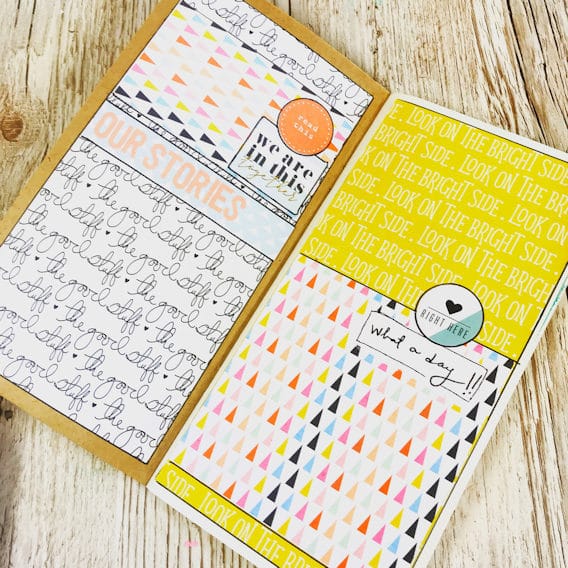 the good stuff ♥ the good stuff
the good stuff
read
this
we are
in this
together
OUR STORIES
the good stuff ♥ the good stuff
the good stuff ♥ the good stuff
the good stuff ♥ the good stuff
the good stuff ♥ the good stuff
the good stuff ♥ the good stuff
the good stuff ♥ the good stuff
LOOK ON THE BRIGHT SIDE.
SIDE. LOOK ON THE BRIGHT
BRIGHT SIDE. LOOK ON THE
THE BRIGHT SIDE. LOOK ON
LOOK ON THE BRIGHT SIDE.
SIDE. LOOK ON THE BRIGHT
RIGHT HERE
What a day !!
SIDE. LOOK ON THE BRIGHT